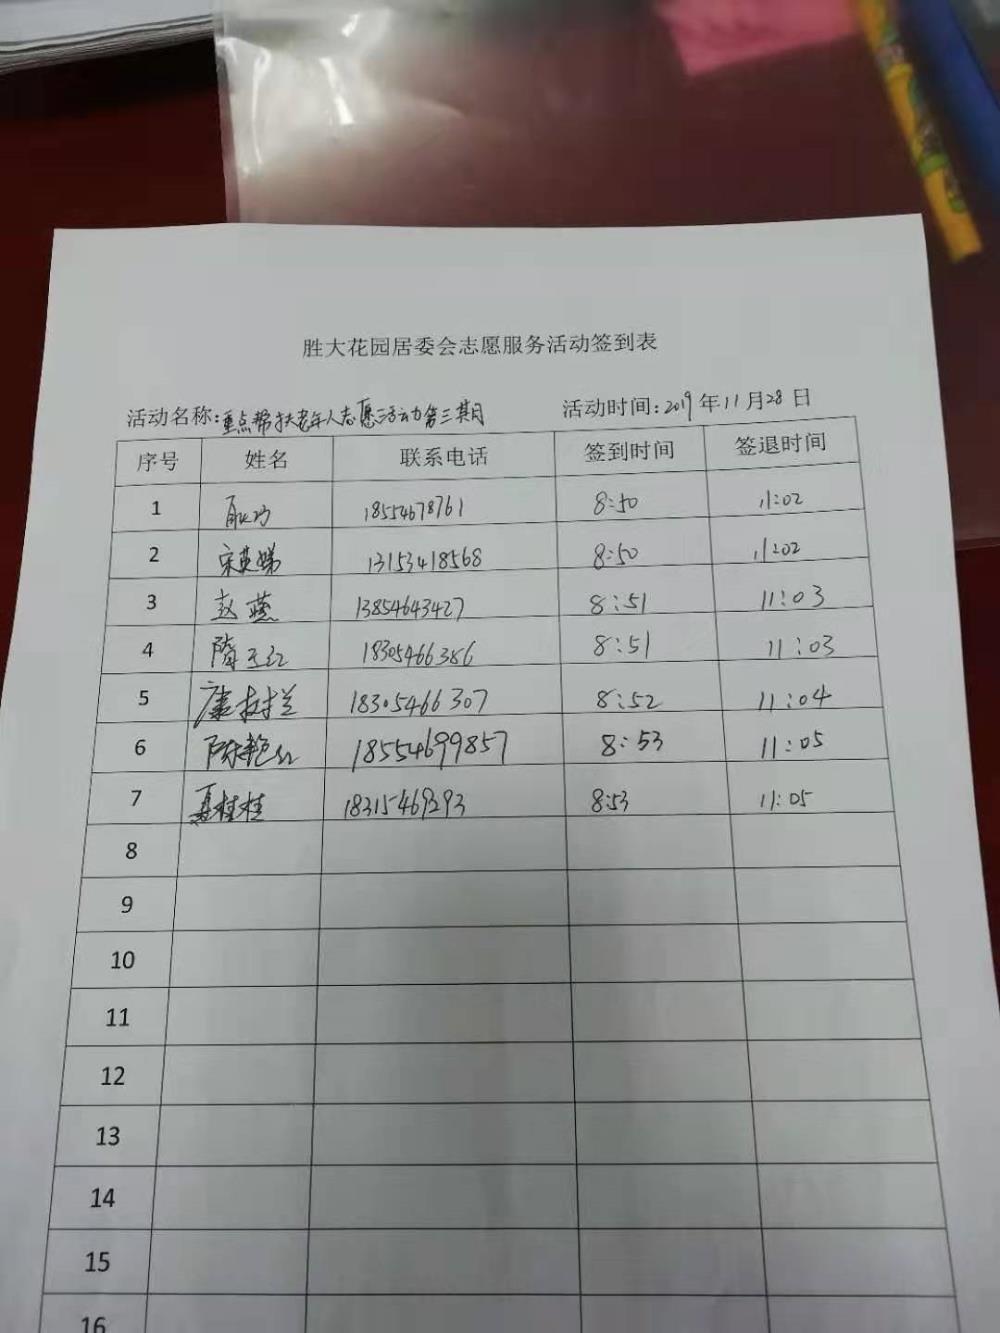 胜大花园居委会志愿服务活动签到表
活动名称:重点帮扶老年人志愿活动第三期 活动时间:2019年11月28日
序号 姓名 联系电话 签到时间 签退时间
1 18554678761 8:50 11:02
2 宋英娣 13153418568 8:50 11:02
3 赵燕 13854643427 8:51 11:03
4 隋玉红 18305466386 8:51 11:03
5 康树兰 18305466307 8:52 11:04
6 陈艳红 18554699857 8:53 11:05
7 聂桂桂 18315469293 8:53 11:05
8
9
10
11
12
13
14
15
16